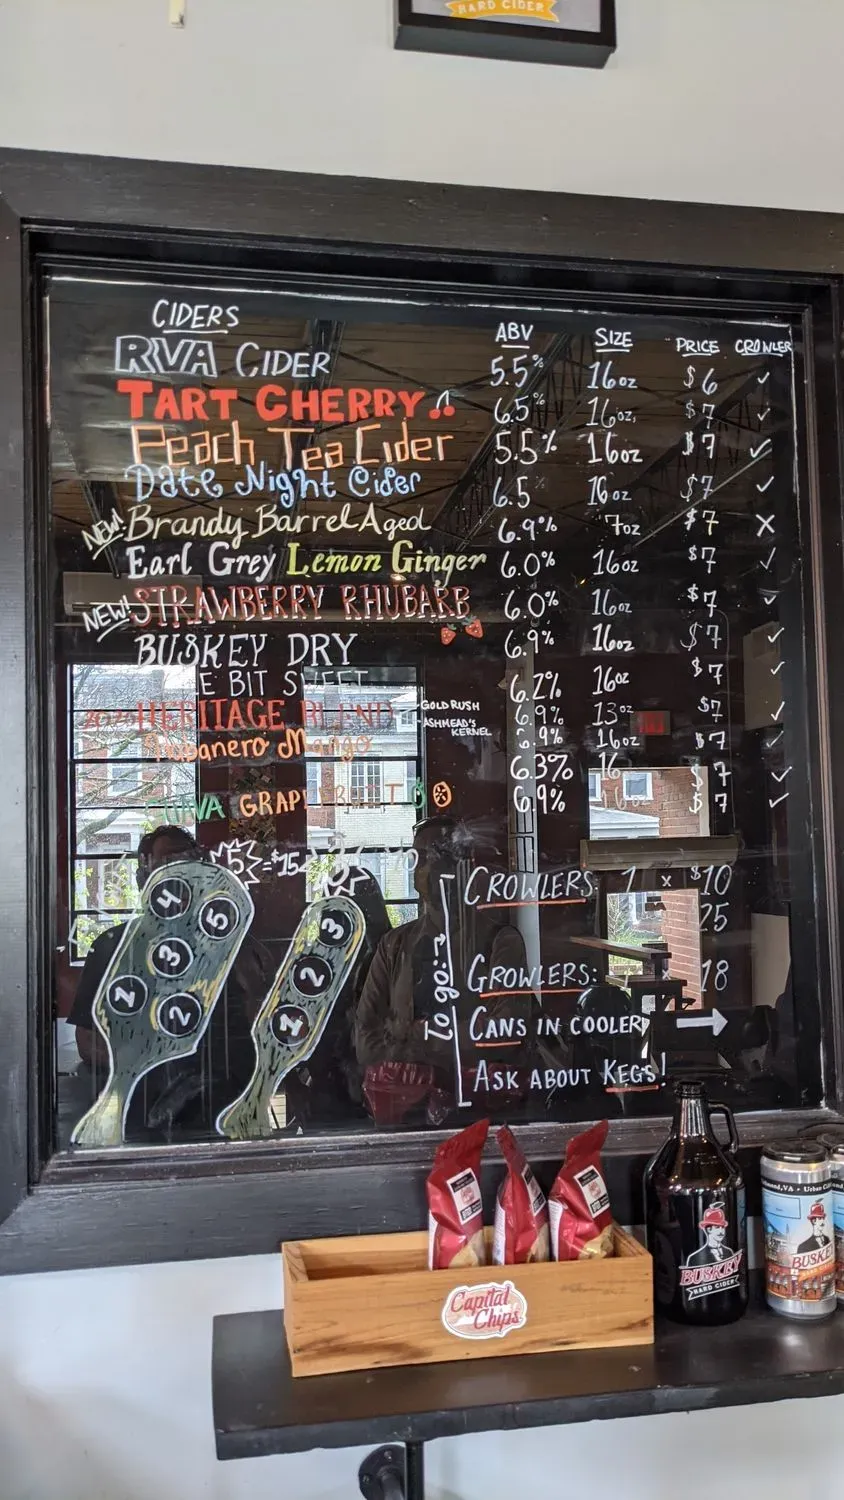 HARD CIDER
CIDERS ABV SIZE PRICE CROWLER
RVA CIDER 5.5% 16oz $6 ✓
TART CHERRY 6.5% 16oz. $7 ✓
Peach Tea Cider 5.5% 16oz $7 ✓
Date Night Cider 6.5% 16oz $7 ✓
NEW! Brandy Barrel Aged 6.9% 7oz $7 X
Earl Grey Lemon Ginger 6.0% 16oz $7 ✓
NEW! STRAWBERRY RHUBARB 6.0% 16oz $7 ✓
BUSKEY DRY 6.9% 16oz $7 ✓
E BIT SWEET 6.2% 16oz $7 ✓
HERITAGE BLEND GOLD RUSH 6.9% 13oz $7 ✓
ASHMEAD'S
KERNEL
Habanero Mango 6.9% 16oz $7 ✓
6.3% 16 $7 ✓
GUAVA GRAPEFRUIT 6.9% 16oz $7 ✓
5 = $15 3
CROWLERS 1 x $10
25
To go:
GROWLERS: x 18
CANS IN COOLER
ASK ABOUT KEGS!
4
5
3
1
2
3
2
1
Capital
Chips
BUSKEY
HARD CIDER
BUSKEY